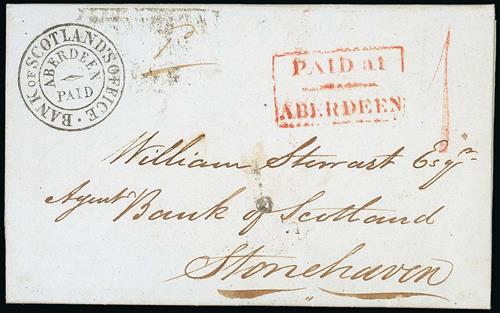 BANK OF SCOTLAND'S OFFICE
ABERDEEN
PAID
PAID at
ABERDEEN
1
William Stewart Esqr.
Agent Bank of Scotland
Stonehaven